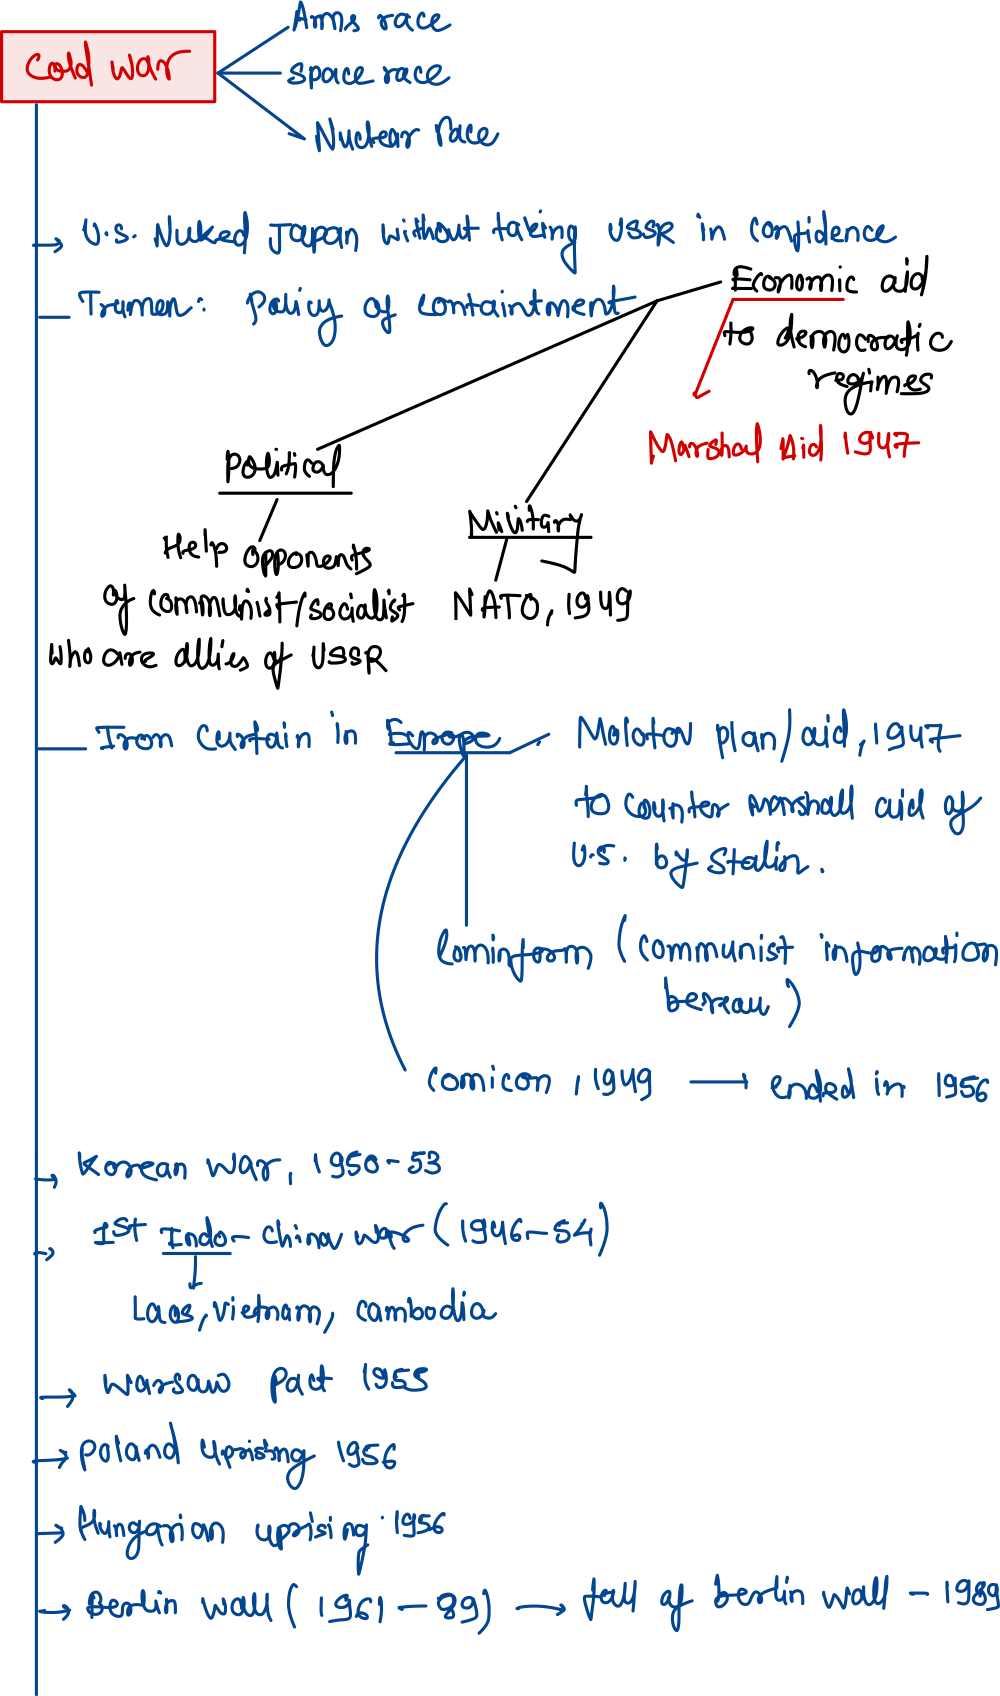 Cold war
Arms race
space race
Nuclear race
U.S. Nuked Japan without taking USSR in confidence
Trumen: Policy of containtment
Economic aid
to democratic
regimes
Marshal Aid 1947
Political
Help opponents
of communist/socialist
who are allies of USSR
Military
NATO, 1949
Iron Curtain in Europe
Molotov plan/aid, 1947
to counter marshall aid of
U.S. by Stalin.
Cominform (communist information
bereau)
comicon, 1949 → ended in 1956
Korean war, 1950-53
1st Indo-china war (1946-54)
Laos, vietnam, cambodia
Warsaw Pact 1955
Poland uprising 1956
Hungarian uprising 1956
Berlin wall (1961-89) → fall of berlin wall - 1989